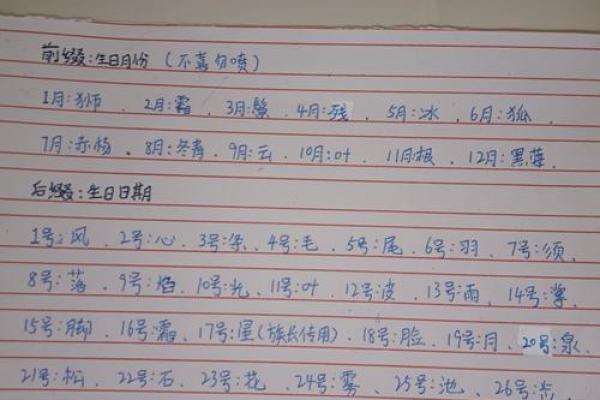 前缀：生日月份（不喜勿喷）
1月：狮、2月：霜、3月：鬃、4月：残、5月：冰、6月：狐、
7月：赤杨、8月：冬青、9月：云、10月：叶、11月：根、12月：黑莓、
后缀：生日日期
1号：风、2号：心、3号：条、4号：毛、5号：尾、6号：羽、7号：须、
8号：落、9号：焰、10号：光、11号：叶、12号：皮、13号：雨、14号：掌、
15号：脚、16号：霜、17号：星（族长传用）、18号：脸、19号：月、20号：泉、
21号：松、22号：石、23号：花、24号：雾、25号：池、26号：